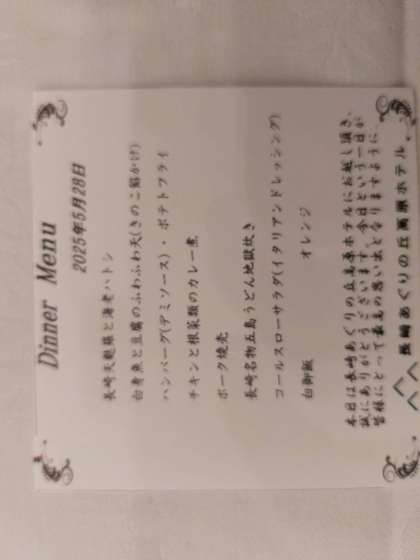 Dinner Menu
2025年5月28日
長崎天麩羅と海老ハトシ
白身魚と豆腐のふわふわ天(きのこ餡かけ)
ハンバーグ(デミソース)・ポテトフライ
チキンと根菜類のカレー煮
ポーク焼売
長崎名物五島うどん地獄炊き
コールスローサラダ(イタリアンドレッシング)
白御飯 オレンジ
本日は長崎あぐりの丘高原ホテルにお越し頂き、
誠にありがとうございます。今日という一日が
皆様にとって最高の思い出となりますように
長崎あぐりの丘高原ホテル